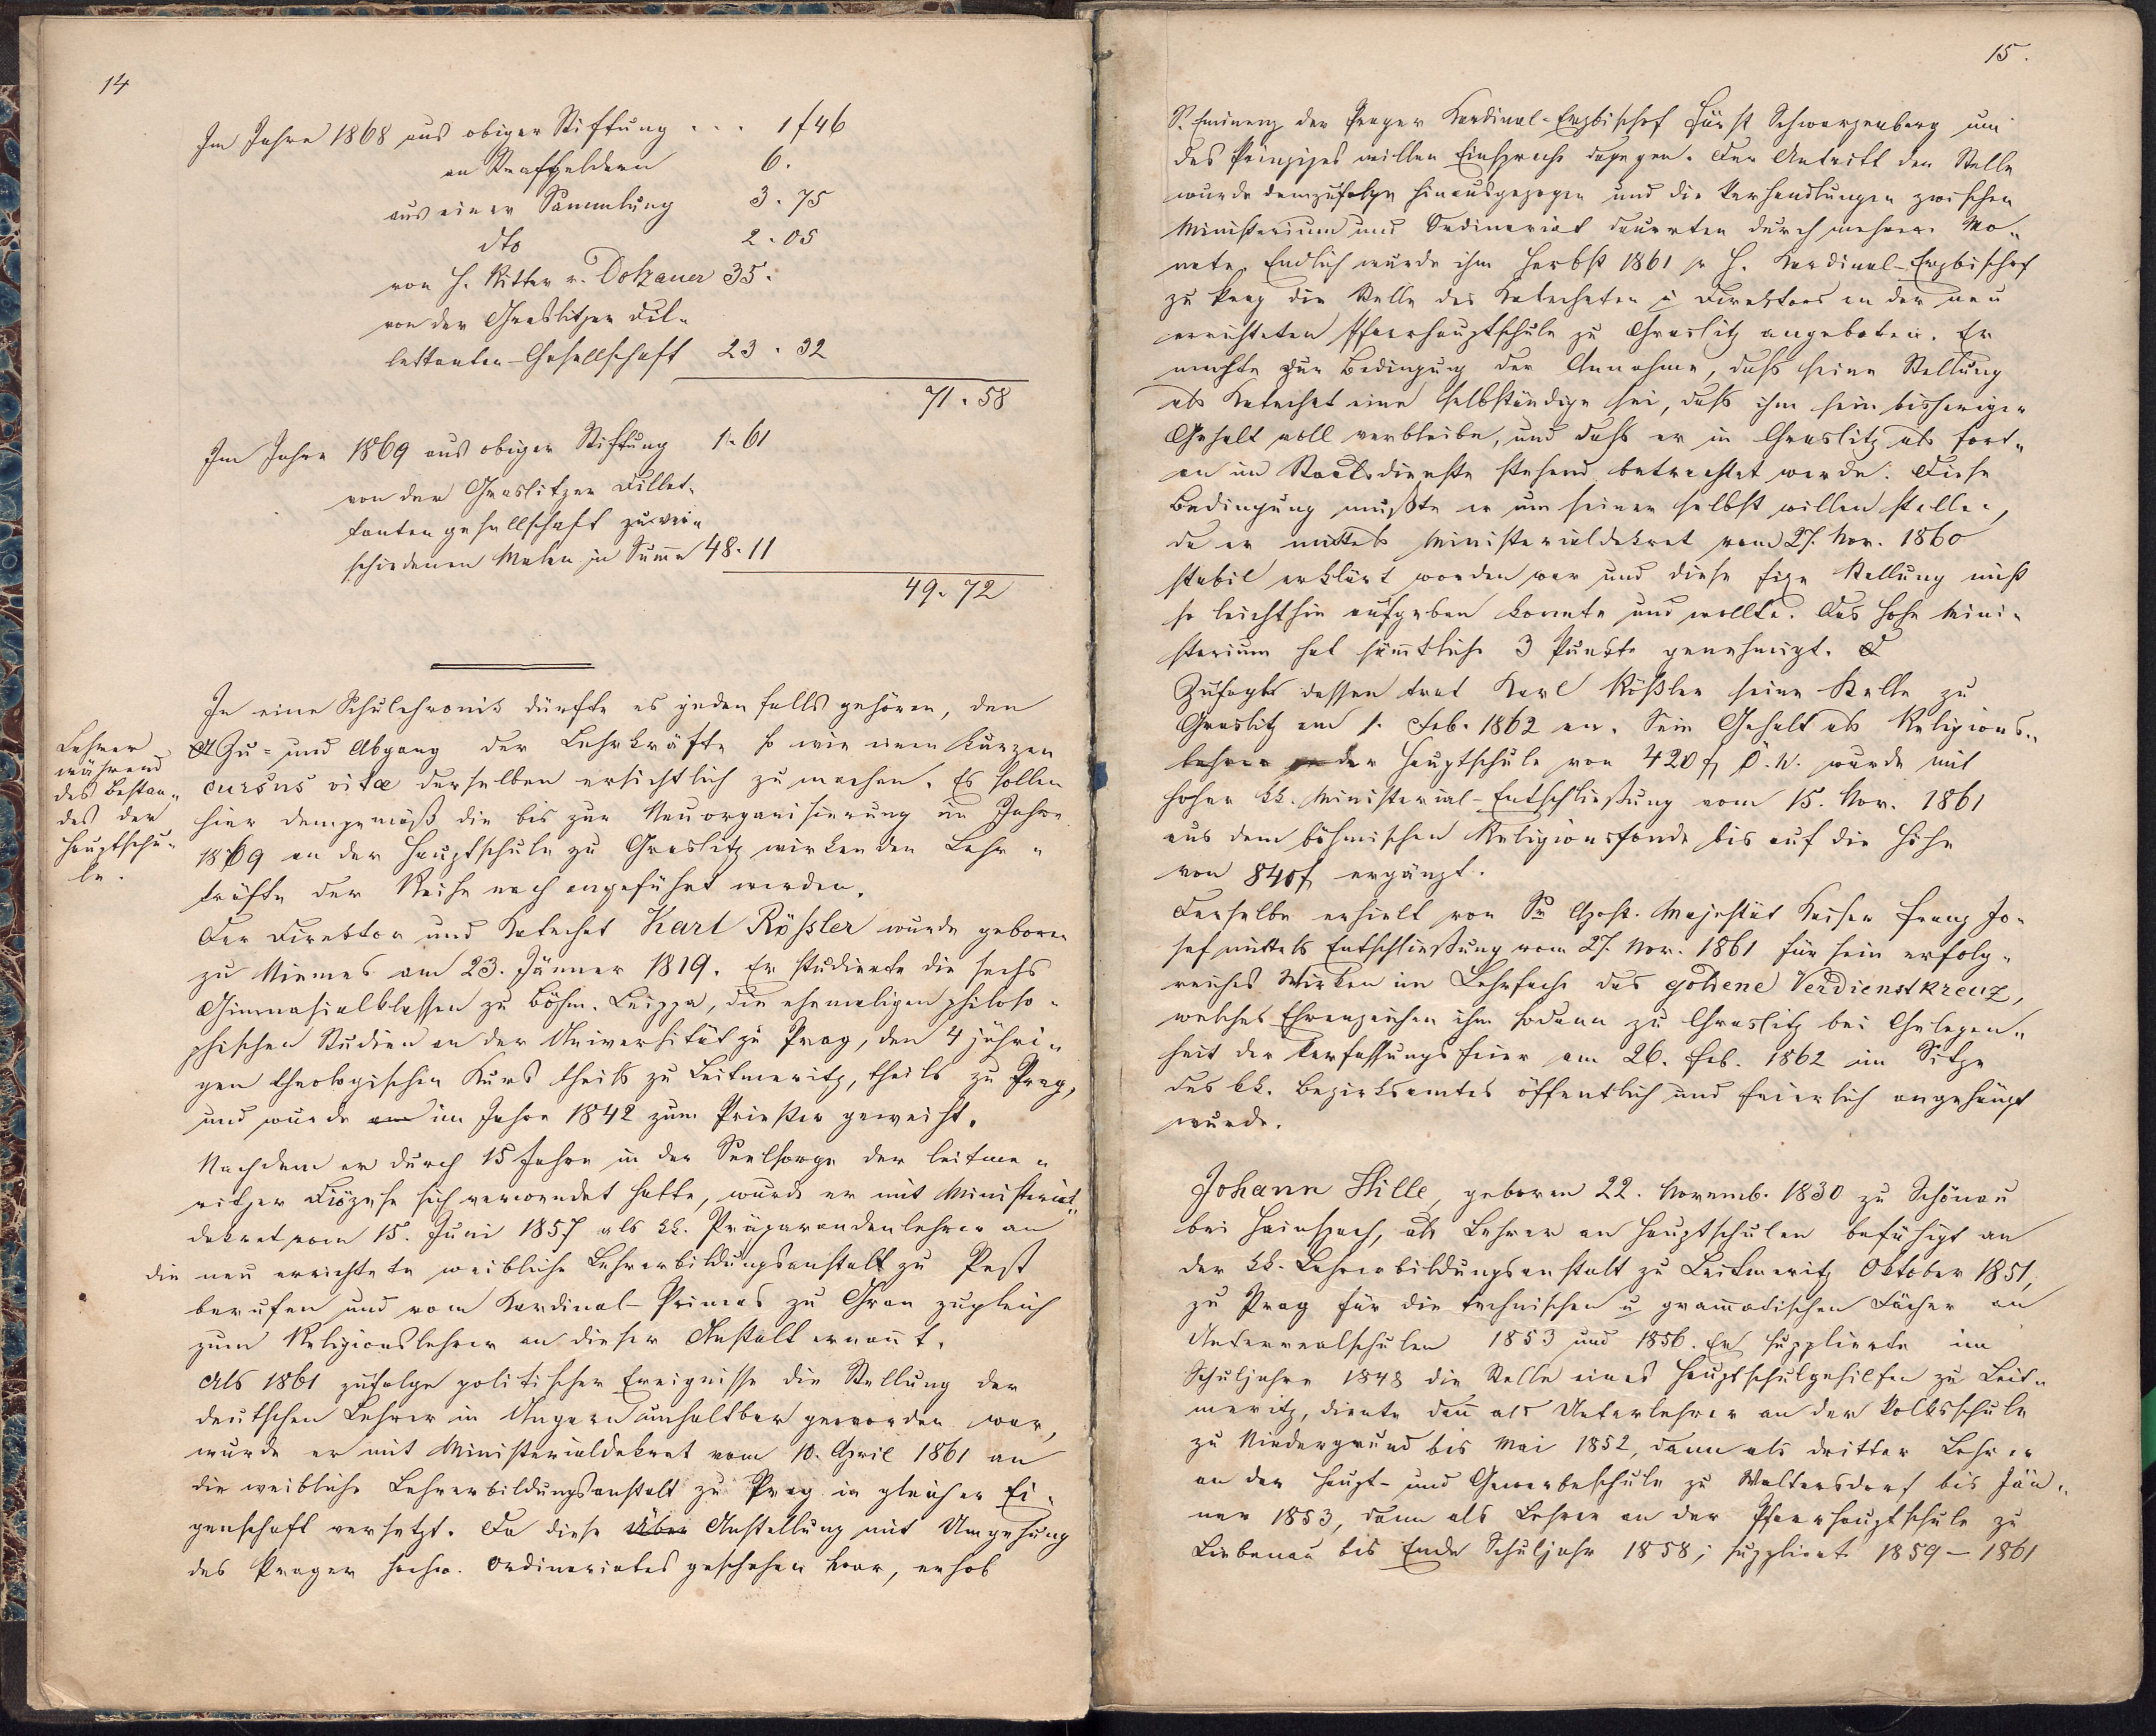 14
Im Jahre 1868 aus obiger Stiftung . . . 1 f 46
an Strafgeldern 6.
aus einer Sammlung 3. 75
dto 2. 05
von H. Ritter v. Dotzauer 35.
von der Graslitzer Dil„
lettanten-Gesellschaft 23. 32
71. 58
Im Jahre 1869 aus obiger Stiftung 1. 61
von der Graslitzer Dillet„
tantengesellschaft zu ver„
schiedenen Malen in Sum̅a 48. 11
49. 72
In eine Schulchronik dürfte es jedenfalls gehören, den
Lehrer
während
des Bestan„
des der
Hauptschu„
le.
Zu= und Abgang der Lehrkräfte so wie einen kurzen
cursus vitæ derselben ersichtlich zu machen. Es sollen
hier demgemäß die bis zur Neuorganisierung im Jahre
1869 an der Hauptschule zu Graslitz wirkenden Lehr„
kräfte der Reihe nach angeführt werden.
Der Direktor und Katechet Karl Rößler wurde geboren
zu Niemes am 23. Jänner 1819. Er studierte die sechs
Gimnasialklassen zu Böhm. Leippa, die ehemaligen philoso„
phischen Studien an der Universität zu Prag, den 4 jähri„
gen theologischen Kurs theils zu Leitmeritz, theils zu Prag,
und wurde am im Jahre 1842 zum Priester geweiht.
Nachdem er durch 15 Jahre in der Seelsorge der leitme„
ritzer Diözese sich verwendet hatte, wurde er mit Ministerial„
dekret vom 15. Juni 1857 als kk. Präparandenlehrer an
die neu errichtete weibliche Lehrerbildungsanstalt zu Pest
berufen und vom Kardinal-Primas zu Gran zugleich
zum Religionslehrer an dieser Anstalt ernan̅t.
Als 1861 zufolge politischer Ereignisse die Stellung der
deutschen Lehrer in Ungarn unhaltbar geworden war,
wurde er mit Ministerialdekret vom 10. April 1861 an
die weibliche Lehrerbildungsanstalt zu Prag in gleicher Ei„
genschaft versetzt. Da diese Über Anstellung mit Umgehung
des Prager hochw. Ordinariates geschehen war, erhob
15.
Sr. Eminenz der Prager Kardinal-Erzbischof Fürst Schwarzenberg um
des Prinzipes willen Einsprache dagegen. Der Antritt der Stelle
wurde demzufolge hinausgezogen und die Verhandlungen zwischen
Ministerium und Ordinariat dauerten durch mehrere Mo„
nate. Endlich wurde ihm Herbst 1861 H. Kardinal-Erzbischof
zu Prag die Stelle des Katecheten u Direktors an der neu
errichteten Pfarrhauptschule zu Graslitz angeboten. Er
machte zur Bedingung der Annahme, daß seine Stellung
als Katechet eine selbständige sei, daß ihm sein bisheriger
Gehalt voll verbleibe, und daß er in Graslitz als fort„
an im Staatsdienste stehend betrachtet werde. Diese
Bedingung mußte er um seiner selbst willen stellen,
da er mittels Ministerialdekret vom 27. Nov. 1860
stabil erklärt worden war und diese fixe Stellung nicht
so leichthin aufgeben konnte und wollte. Das hohe Mini„
sterium hat säm̅tliche 3 Punkte genehmigt.
Zufolge dessen trat Karl Rößler seine Stelle zu
Graslitz am 1. Feb. 1862 an. Sein Gehalt als Religions„
lehrer der Hauptschule von 420 f Ö. W. wurde mit
hoher kk. Ministerial-Entschließung vom 15. Nov. 1861
aus dem böhmischen Religionsfonde bis auf die Höhe
von 840 f ergänzt.
Derselbe erhielt von Sr Apost. Majestät Kaiser Franz Jo„
sef mittels Entschließung vom 27. Nov. 1861 für sein erfolg„
reiches Wirken im Lehrfache das goldene Verdienstkreuz,
welches Ehrenzeichen ihm sodann zu Graslitz bei Gelegen„
heit der Verfassungsfeier am 26. Feb. 1862 im Sitze
des kk. Bezirksamtes öffentlich und feierlich angehängt
wurde.
Johann Hille, geboren 22. Novemb. 1830 zu Schönau
bei Hainspach, als Lehrer an Hauptschulen befähigt an
der kk. Lehrerbildungsanstalt zu Leitmeritz Oktober 1851,
zu Prag für die technischen u gram̅atischen Fächer an
Unterrealschulen 1853 und 1856. Er supplierte im
Schuljahre 1848 die Stelle eines Hauptschulgehilfen zu Leit„
meritz, diente dan̅ als Unterlehrer an der Volksschule
zu Niedergrund bis Mai 1852, dann als dritter Lehrer
an der Haupt- und Gewerbeschule zu Waltersdorf bis Jän„
ner 1853, dann als Lehrer an der Pfarrhauptschule zu
Liebenau bis Ende Schuljahr 1858; supplierte 1859 – 1861